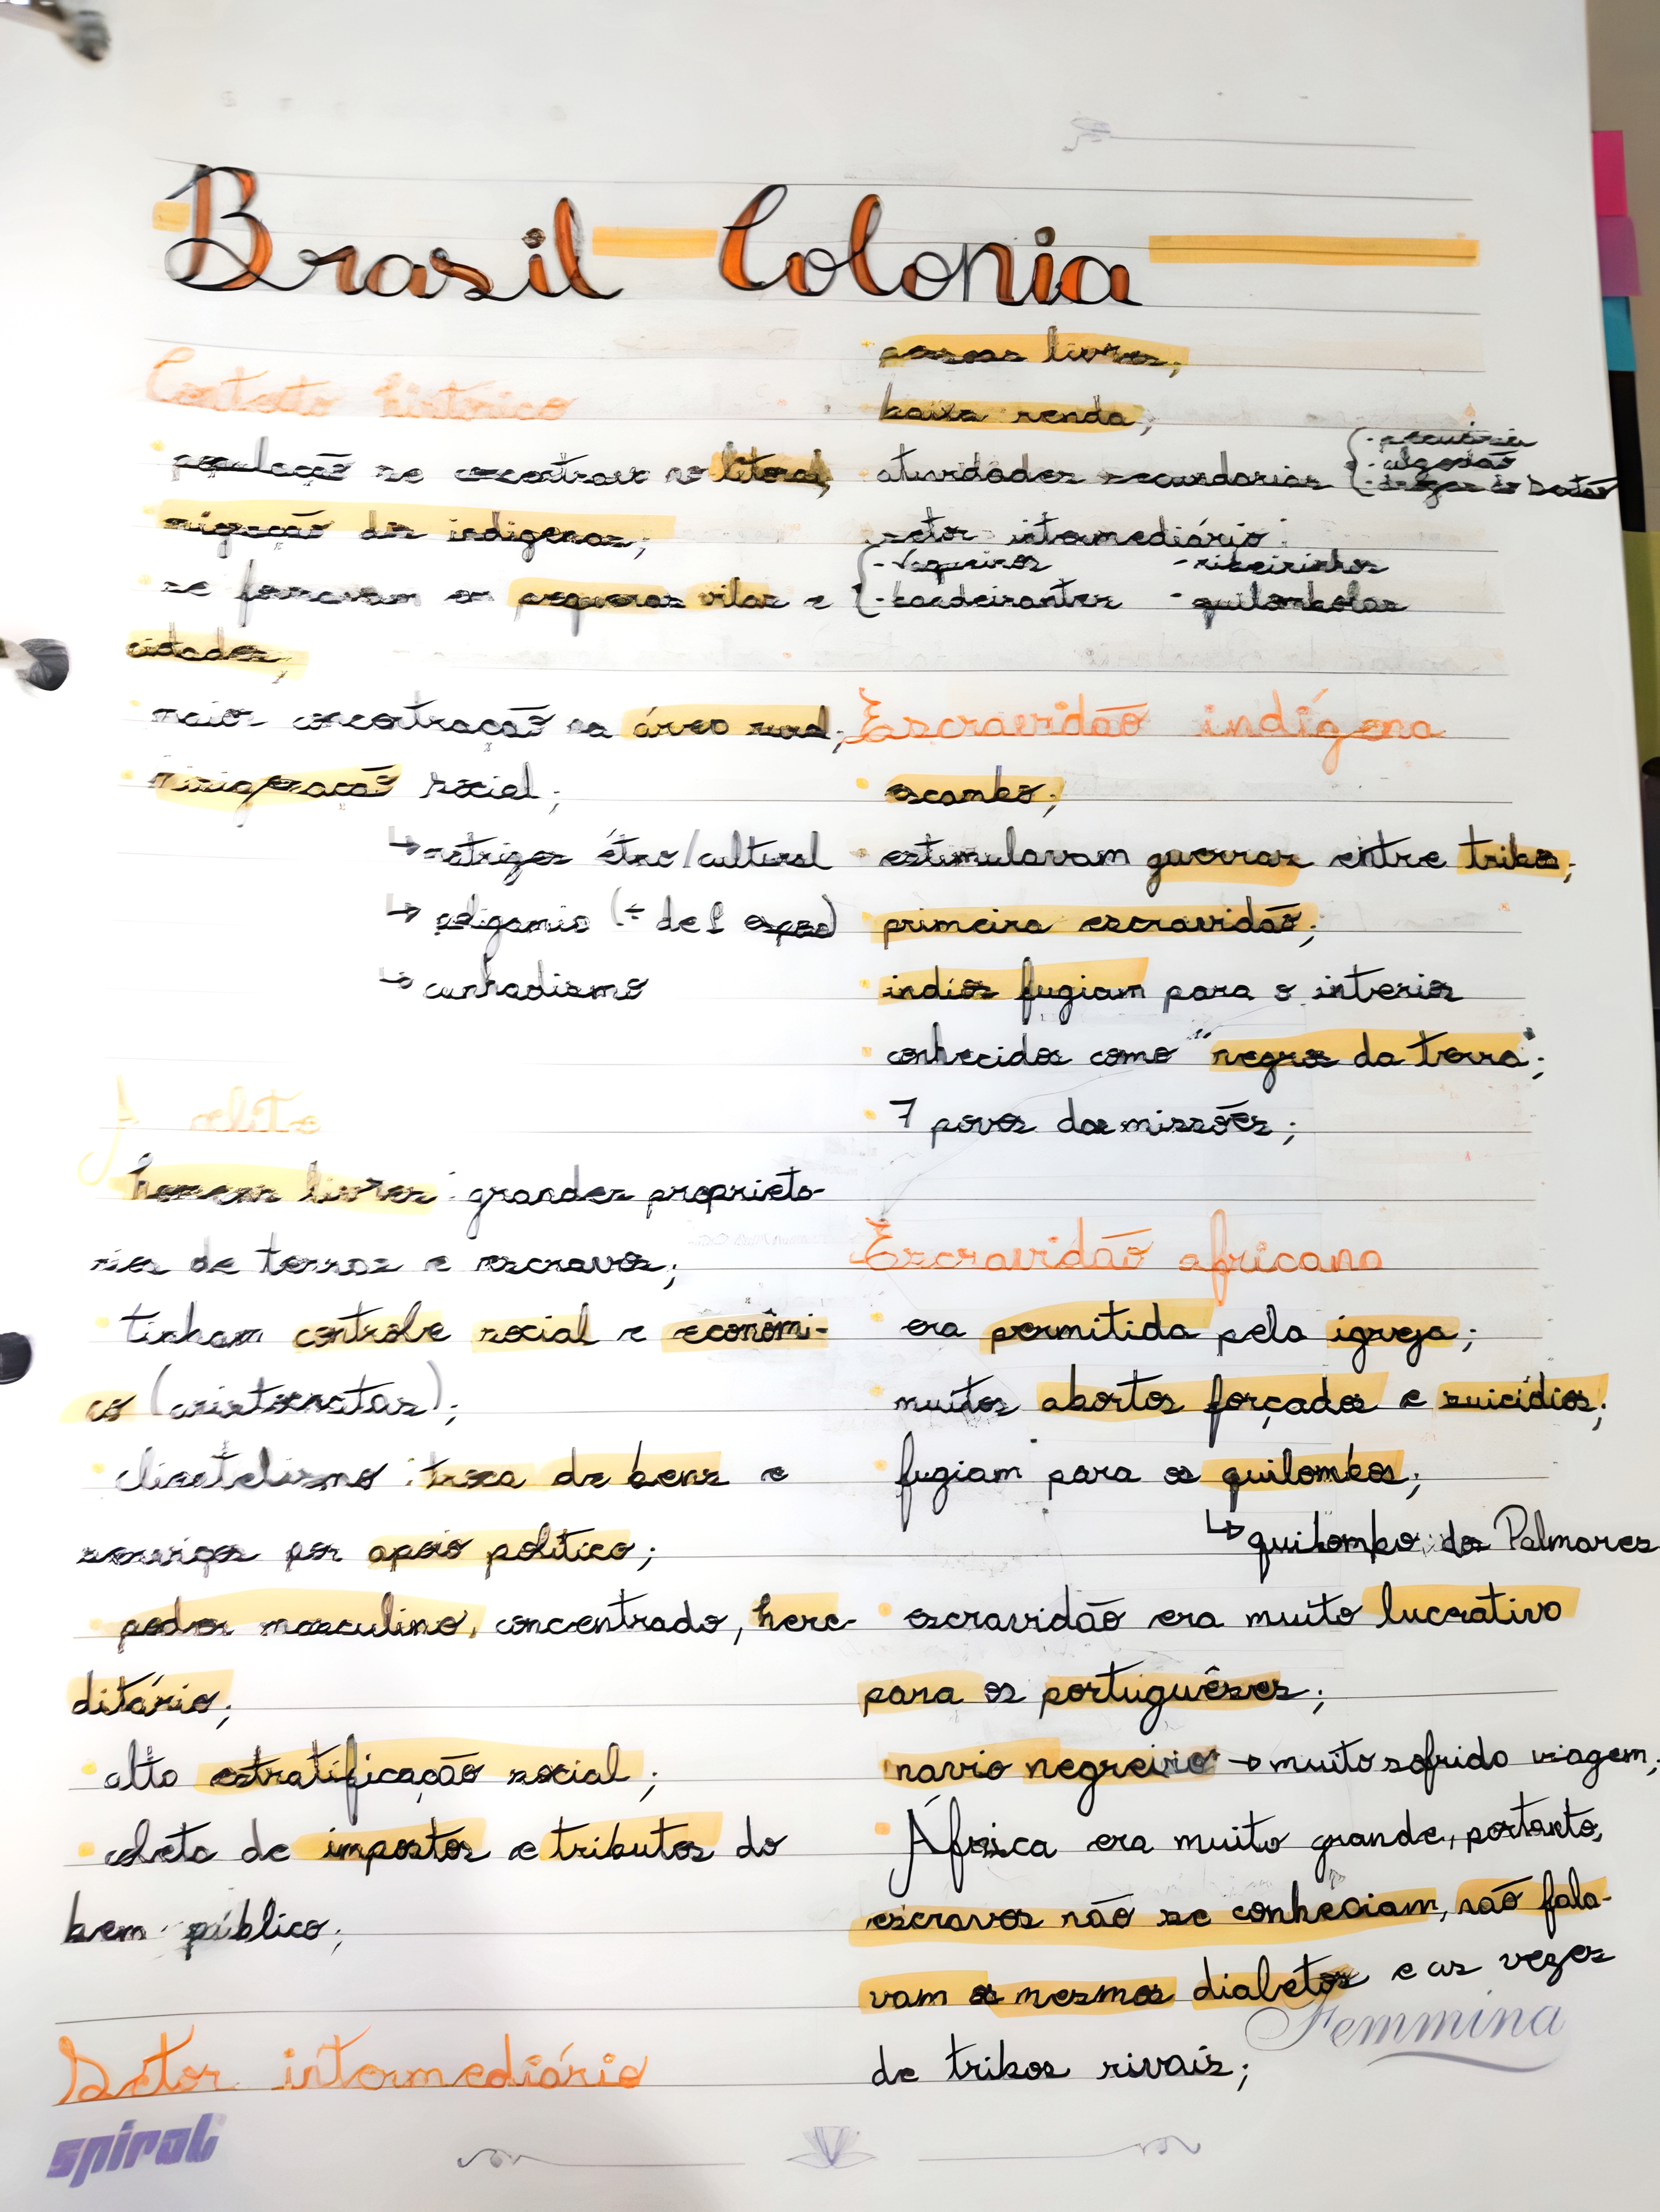 Brasil Colonia
Contexto histórico
população se concentrava no litoral;
migração dos indígenas;
se formavam em pequenas vilas e
cidades;
maior concentração na área rural;
miscigenação social;
↳ étno/cultural
↳ poligamia (+ de 1 esposa)
↳ cunhadismo
A elite
homens livres: grandes proprieta-
rios de terras e escravos;
tinham controle social e econômi-
co (aristocratas);
clientelismo: troca de bens e
serviços por apoio político;
poder masculino, concentrado, here-
ditário;
alta estratificação social;
coleta de impostos e tributos do
bem público;
Setor intermediário
pessoas livres;
baixa renda;
atividades secundarias { - pecuária
- algodão
- drogas do Sertão
setor intermediário:
{ - vaqueiros - ribeirinhos
- bandeirantes - quilombolas
Escravidão indígena
escambo;
estimulavam guerras entre tribos;
primeira escravidão;
indios fugiam para o interior
conhecidos como "negros da terra";
7 povos das missões;
Escravidão africana
era permitida pela igreja;
muitos abortos forçados e suicídios;
fugiam para os quilombos;
↳ quilombo dos Palmares
escravidão era muito lucrativo
para os portuguêses;
navio negreiro → muito sofrido viagem;
África era muito grande, portanto,
escravos não se conheciam, não fala-
vam os mesmos dialetos e as vezes
de tribos rivais;
Femmina
spiral